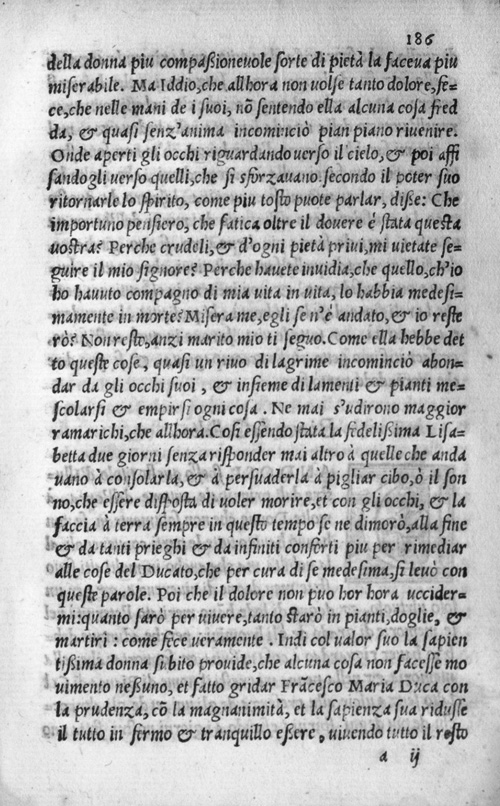 186
della donna piu compaßioneuole sorte di pietà la faceua piu
miserabile. Ma Iddio, che allhora non uolse tanto dolore, fe=
ce, che nelle mani de i suoi, nō sentendo ella alcuna cosa fred
da, & quasi senz'anima incominciò pian piano riuenire.
Onde aperti gli occhi riguardando uerso il cielo, & poi affi
sandogli uerso quelli, che si sforzauano secondo il poter suo
ritornarle lo spirito, come piu tosto puote parlar, diße: Che
importuno pensiero, che fatica oltre il douere é stata questa
uostra? Perche crudeli, & d'ogni pietà priui, mi uietate se=
guire il mio signore? Perche hauete inuidia, che quello, ch'io
ho hauuto compagno di mia uita in uita, lo habbia medesi=
mamente in morte? Misera me, egli se n'é andato, & io reste
rò? Non resto, anzi marito mio ti seguo. Come ella hebbe det
to queste cose, quasi un riuo di lagrime incominciò abon=
dar da gli occhi suoi, & insieme di lamenti & pianti me=
scolarsi & empirsi ogni cosa. Ne mai s'udirono maggior
ramarichi, che allhora. Cosi essendo stata la fidelißima Lisa=
betta due giorni senza risponder mai altro à quelle che anda
uano à consolarla, & à persuaderla à pigliar cibo, ò il son
no, che essere disposta di uoler morire, et con gli occhi, & la
faccia à terra sempre in questo tempo se ne dimorò, alla fine
& da tanti prieghi & da infiniti conforti piu per rimediar
alle cose del Ducato, che per cura di se medesima, si leuò con
queste parole. Poi che il dolore non puo hor hora uccider=
mi: quanto sarò per uiuere, tanto starò in pianti, doglie, &
martiri: come fece ueramente. Indi col ualor suo la sapien
tißima donna subito prouide, che alcuna cosa non facesse mo
uimento neßuno, et fatto gridar Frācesco Maria Duca con
la prudenza, cō la magnanimità, et la sapienza sua ridusse
il tutto in fermo & tranquillo eßere, uiuendo tutto il resto
a ij